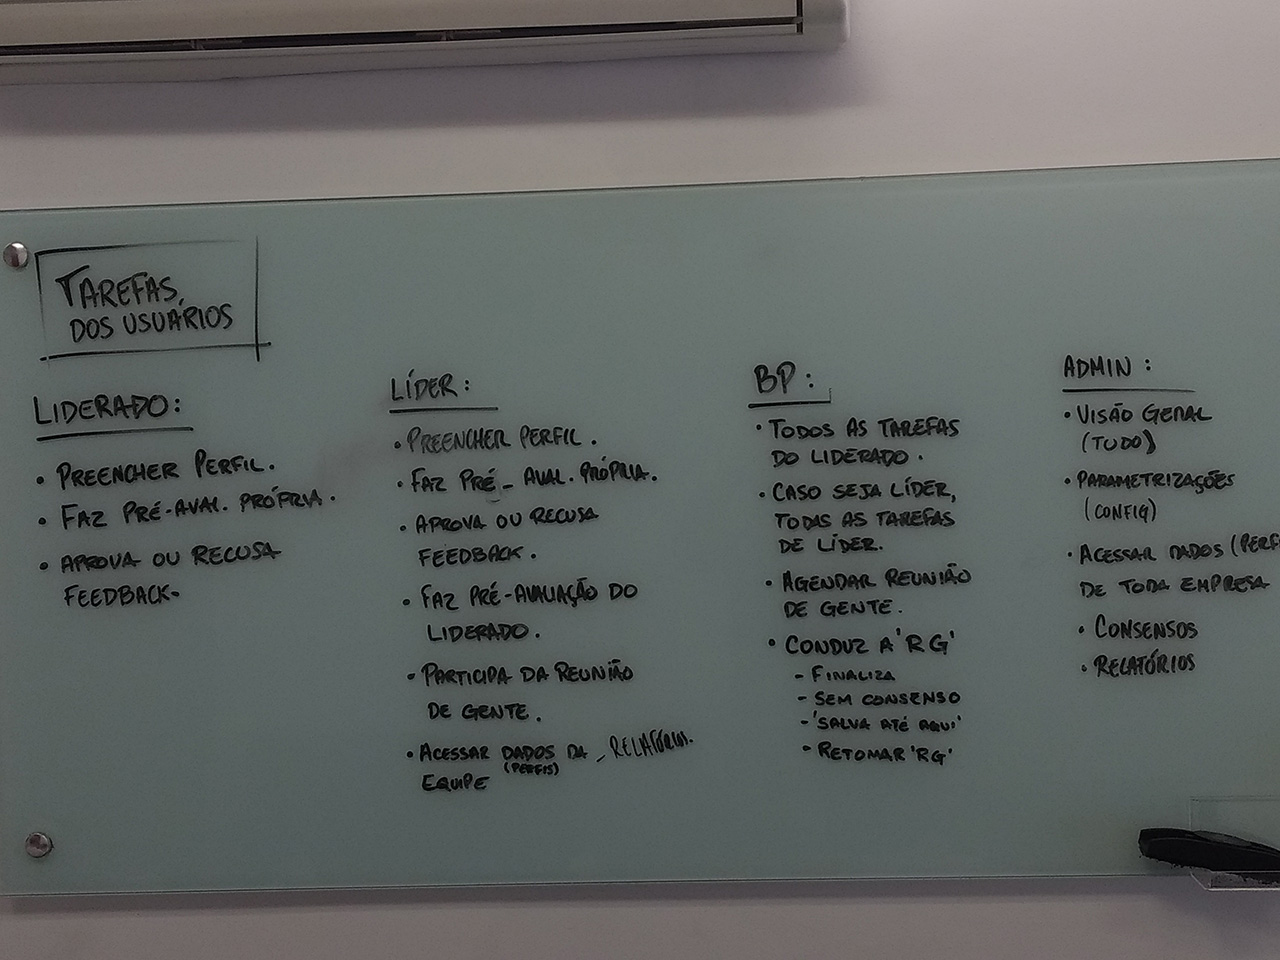 TAREFAS
DOS USUÁRIOS
LIDERADO:
• PREENCHER PERFIL.
• FAZ PRÉ-AVAL. PRÓPRIA.
• APROVA OU RECUSA
FEEDBACK.
LÍDER:
• PREENCHER PERFIL.
• FAZ PRÉ-AVAL. PRÓPRIA.
• APROVA OU RECUSA
FEEDBACK.
• FAZ PRÉ-AVALIAÇÃO DO
LIDERADO.
• PARTICIPA DA REUNIÃO
DE GENTE.
• ACESSAR DADOS DA - RELATÓRIOS.
EQUIPE (PERFIS)
BP:
• TODOS AS TAREFAS
DO LIDERADO.
• CASO SEJA LÍDER,
TODAS AS TAREFAS
DE LÍDER.
• AGENDAR REUNIÃO
DE GENTE.
• CONDUZ A 'RG'
- FINALIZA
- SEM CONSENSO
- 'SALVA ATÉ AQUI'
• RETOMAR 'RG'
ADMIN:
• VISÃO GERAL
(TUDO)
• PARAMETRIZAÇÕES
(CONFIG)
• ACESSAR DADOS (PERF
DE TODA EMPRESA
• CONSENSOS
• RELATÓRIOS